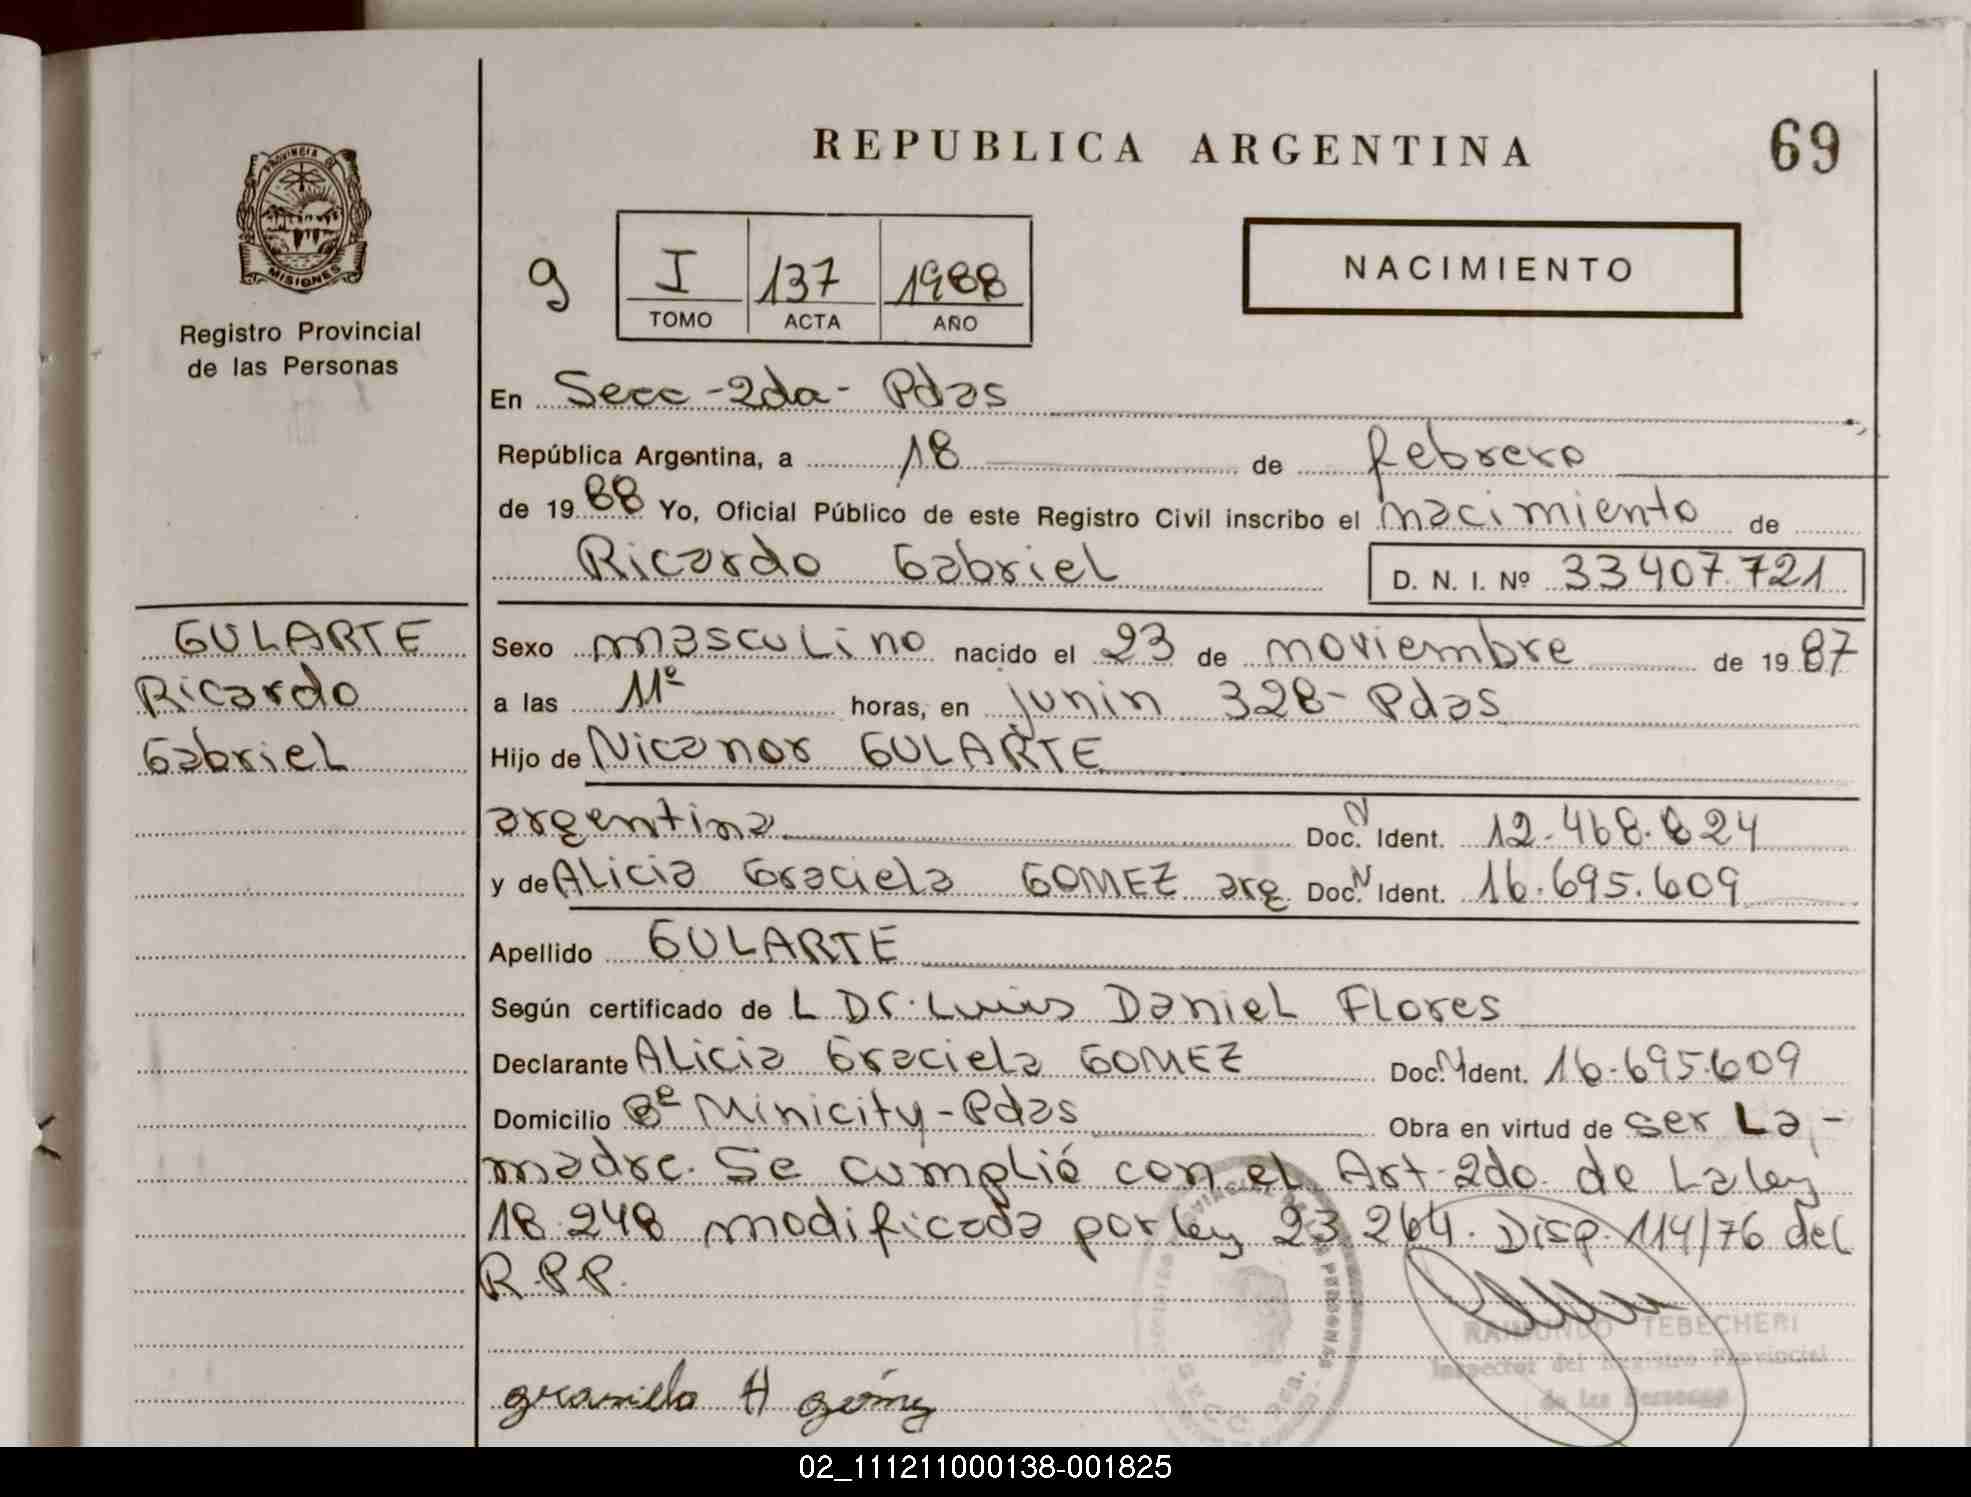 REPUBLICA ARGENTINA
69
PROVINCIA DE
MISIONES
Registro Provincial
de las Personas
9
I 137 1988
TOMO ACTA AÑO
NACIMIENTO
En Secc-2da- Pdas
República Argentina, a 18 de febrero
de 1988 Yo, Oficial Público de este Registro Civil inscribo el nacimiento de
Ricardo Gabriel D. N. I. Nº 33407.721
GULARTE
Ricardo
Gabriel
Sexo masculino nacido el 23 de noviembre de 1987
a las 11º horas, en junin 328- Pdas
Hijo de Nicanor GULARTE
argentina Doc. N Ident. 12.468.824
y de Alicia Graciela GOMEZ arg Doc. N Ident. 16.695.609
Apellido GULARTE
Según certificado de L Dr. Luis Daniel Flores
Declarante Alicia Graciela GOMEZ Doc. N Ident. 16.695.609
Domicilio Bº Minicity-Pdas Obra en virtud de ser La-
madre. Se cumplió con el Art-2do. de La ley
18.248 modificada por ley 23.264. Disp. 114/76 del
R.P.P.
RAIMUNDO TEBECHERI
Inspector del Registro Provincial
de las Personas
02_111211000138-001825